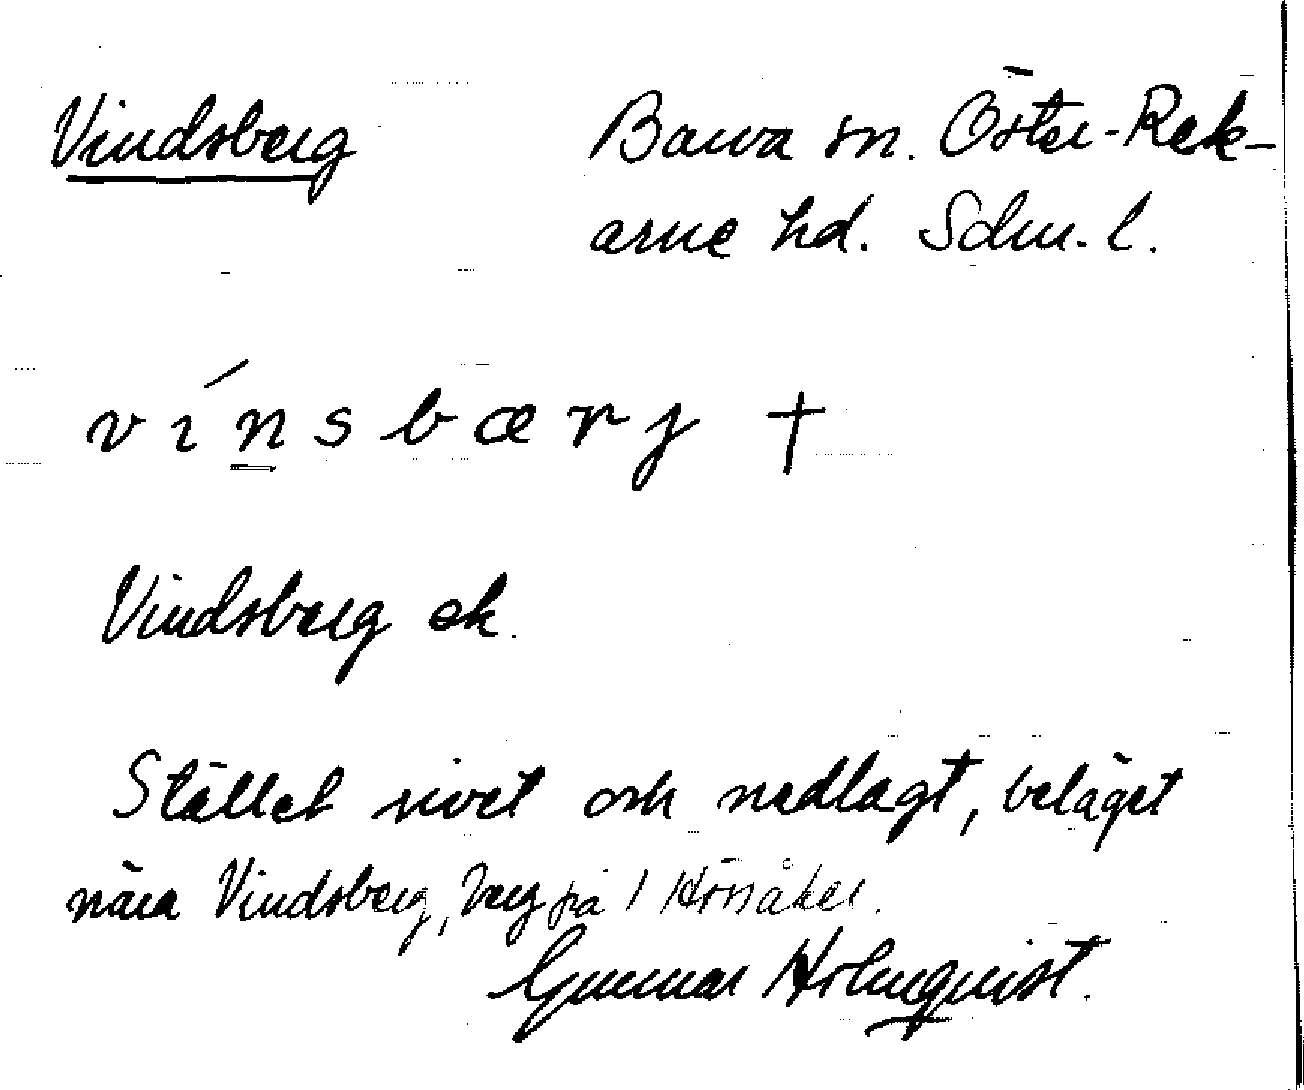 Vindsberg Barva sn. Öster-Rek-
arne hd. Södm. l.
vı́nsbærj †
Vindsberg ek.
Stället rivet och nedlagt, beläget
nära Vindsberg, berg på 1 Hörsåker.
Gunnar Holmquist.